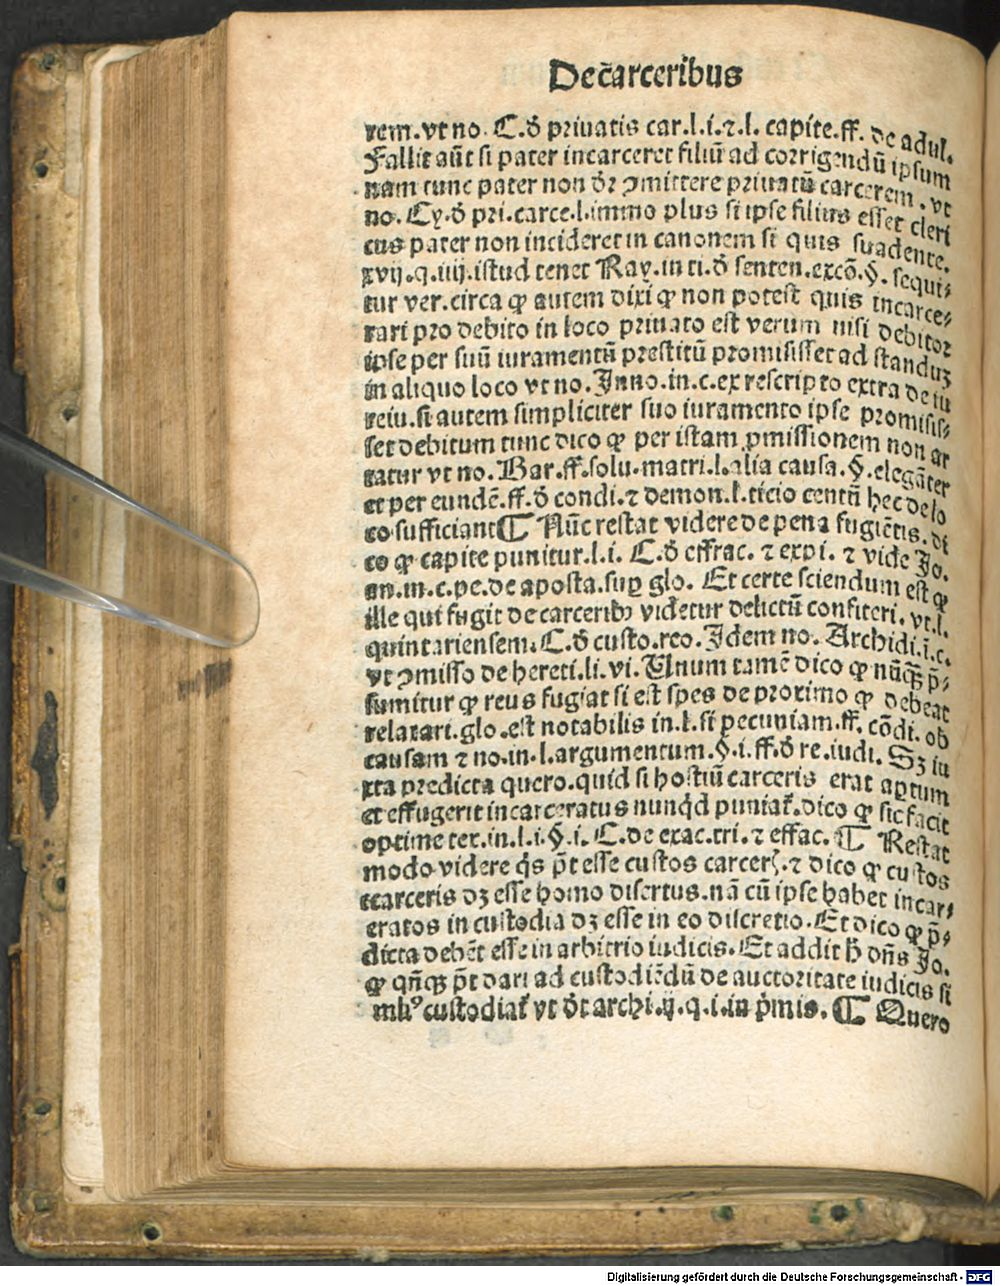 De c̄arceribus
rem.vt no. C.ð priuatis car.l.i.⁊.l. capite.ff. de adul.
Fallit aūt si pater incarceret filiū ad corrigendū ipsum
nam tunc pater non ðr ꝯmittere priuatū carcerem . vt
no. Cy.ð pri.carce.l.immo plus si ipse filius esset cleri
cus pater non incideret in canonem si quis suadente.
xvij.q.iiij.istud tenet Ray.in ti.ð senten.excō.§. sequi⸗
tur ver.circa ꝙ autem dixi ꝙ non potest quis incarce⸗
rari pro debito in loco priuato est verum nisi debitor
ipse per suū iuramentū prestitū promisisset ad standuꝫ
in aliquo loco vt no. Inno.in.c.ex rescripto extra de iu
reiu.si autem simpliciter suo iuramento ipse promisis⸗
set debitum tunc dico ꝙ per istam ꝓmissionem non ar
tatur vt no. Bar.ff.solu.matri.l.alia causa.§.elegāter
et per eundē.ff.ð condi.⁊ demon.l.ticio centū hec de lo
co sufficiant ¶ Nūc restat videre de pena fugiētis. di
co ꝙ capite punitur.l.i. C.ð effrac. ⁊ expi. ⁊ vide Jo.
an.in.c.pe.de aposta.suꝑ glo. Et certe sciendum est ꝙ
ille qui fugit de carceribꝫ videtur delictū confiteri. vt.l.
quintariensem. C.ð custo.reo. Idem no. Archidi.i.c.
vt ꝯmisso de hereti.li.vi. Unum tamē dico ꝙ nūꝗꝫ p̄⸗
sumitur ꝙ reus fugiat si est spes de proximo ꝙ debeat
relaxari.glo.est notabilis in.l.si pecuniam.ff. cōdi. ob
causam ⁊ no.in.l.argumentum.§.i.ff.ð re.iudi. Sꝫ iu
xta predicta quero.quid si hostiū carceris erat aptum
et effugerit incarceratus nunqd puniat᷑.dico ꝙ sic facit
optime tex.in.l.i.§.i. C.de exac.tri. ⁊ effac. ¶ Restat
modo videre qͥs p̄t esse custos carceꝝ.⁊ dico ꝙ custos
carceris dꝫ esse homo disertus.nā cū ipse habet incar⸗
ceratos in custodia dꝫ esse in eo discretio.Et dico ꝙ p̄⸗
dicta debēt esse in arbitrio iudicis. Et addit h̄ dn̄s Jo.
ꝙ qn̄ꝗꝫ p̄t dari ad custodiēdū de auctoritate iudicis si
custodiat᷑ vt ðt archi.ij.q.i.in pͥmis. ¶ Quero
Digitalisierung gefördert durch die Deutsche Forschungsgemeinschaft - DFG